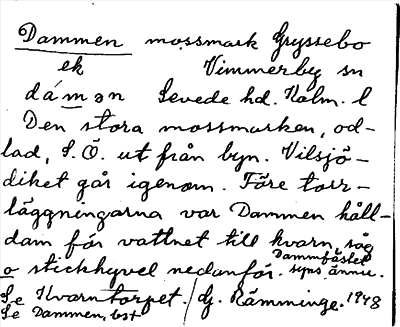 Dammen mossmark Gryssebo
ek Vimmerby sn
dámən Sevede hd. Kalm. l
Den stora mossmarken, od-
lad, S.Ö. ut från byn. Vilsjö-
diket går igenom. Före torr-
läggningarna var Dammen håll-
dam för vattnet till kvarn, såg
o stickhyvel nedanför. Dammfästet
syns ännu.
Se Kvarntorpet. / G. Rämminge. 1948
Se Dammen, bost